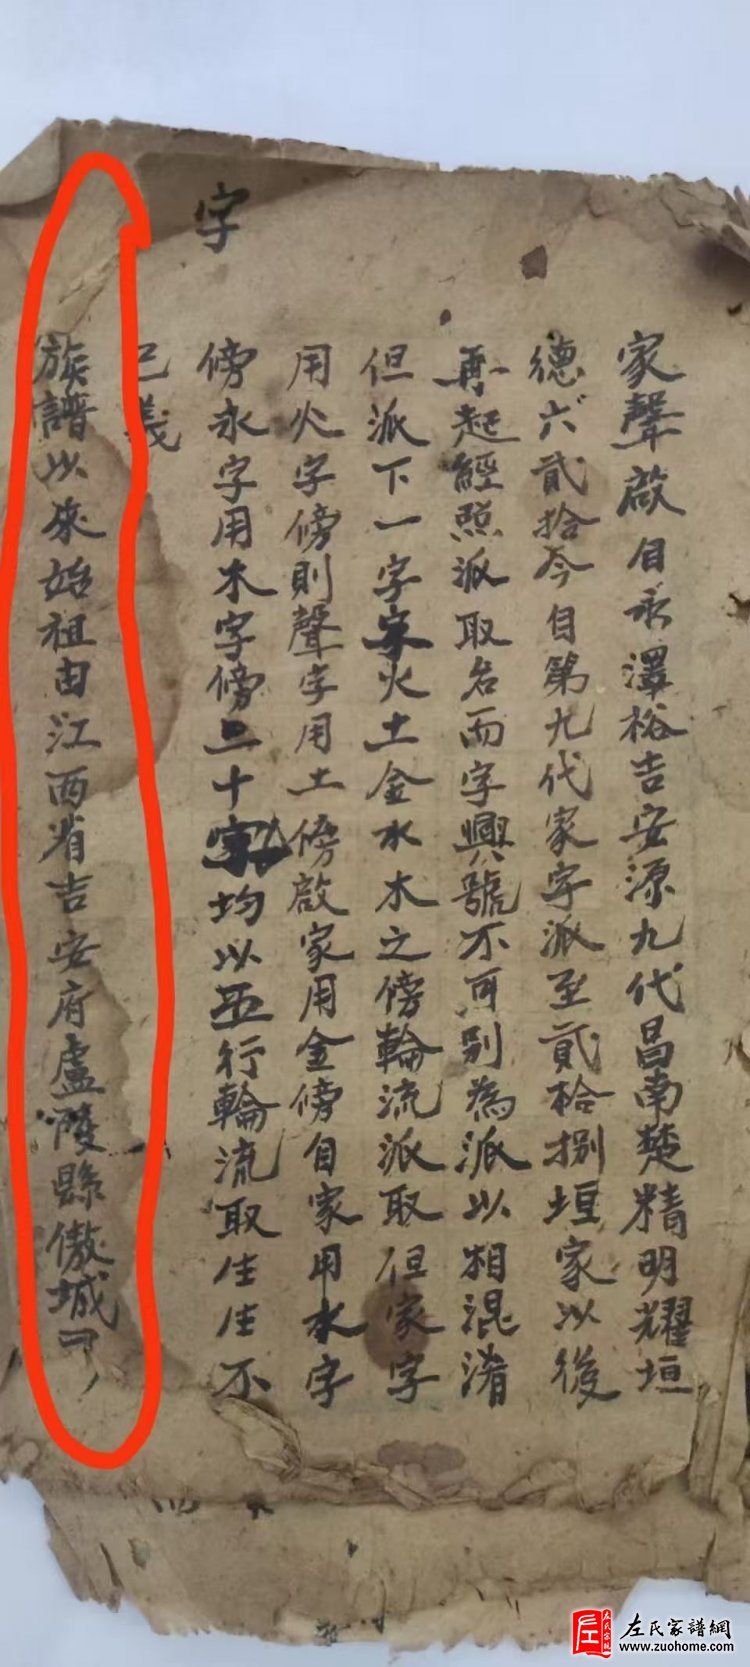 家聲啟自永澤裕吉安源九代昌南楚精明耀垣
德六貳拾今自第九代家字派至貳拾捌垣家以後
再起經照派取名而字興號不可別為派以相混淆
但派下一字字火土金水木之傍輪流派取但家字
用火字傍則聲字用土傍啟家用金傍自家用水字
傍永字用木字傍二十字均以五行輪流取生生不
字
已義
族譜以來始祖由江西省吉安府盧陵縣傲城
左氏家譜網
www.zuohome.com